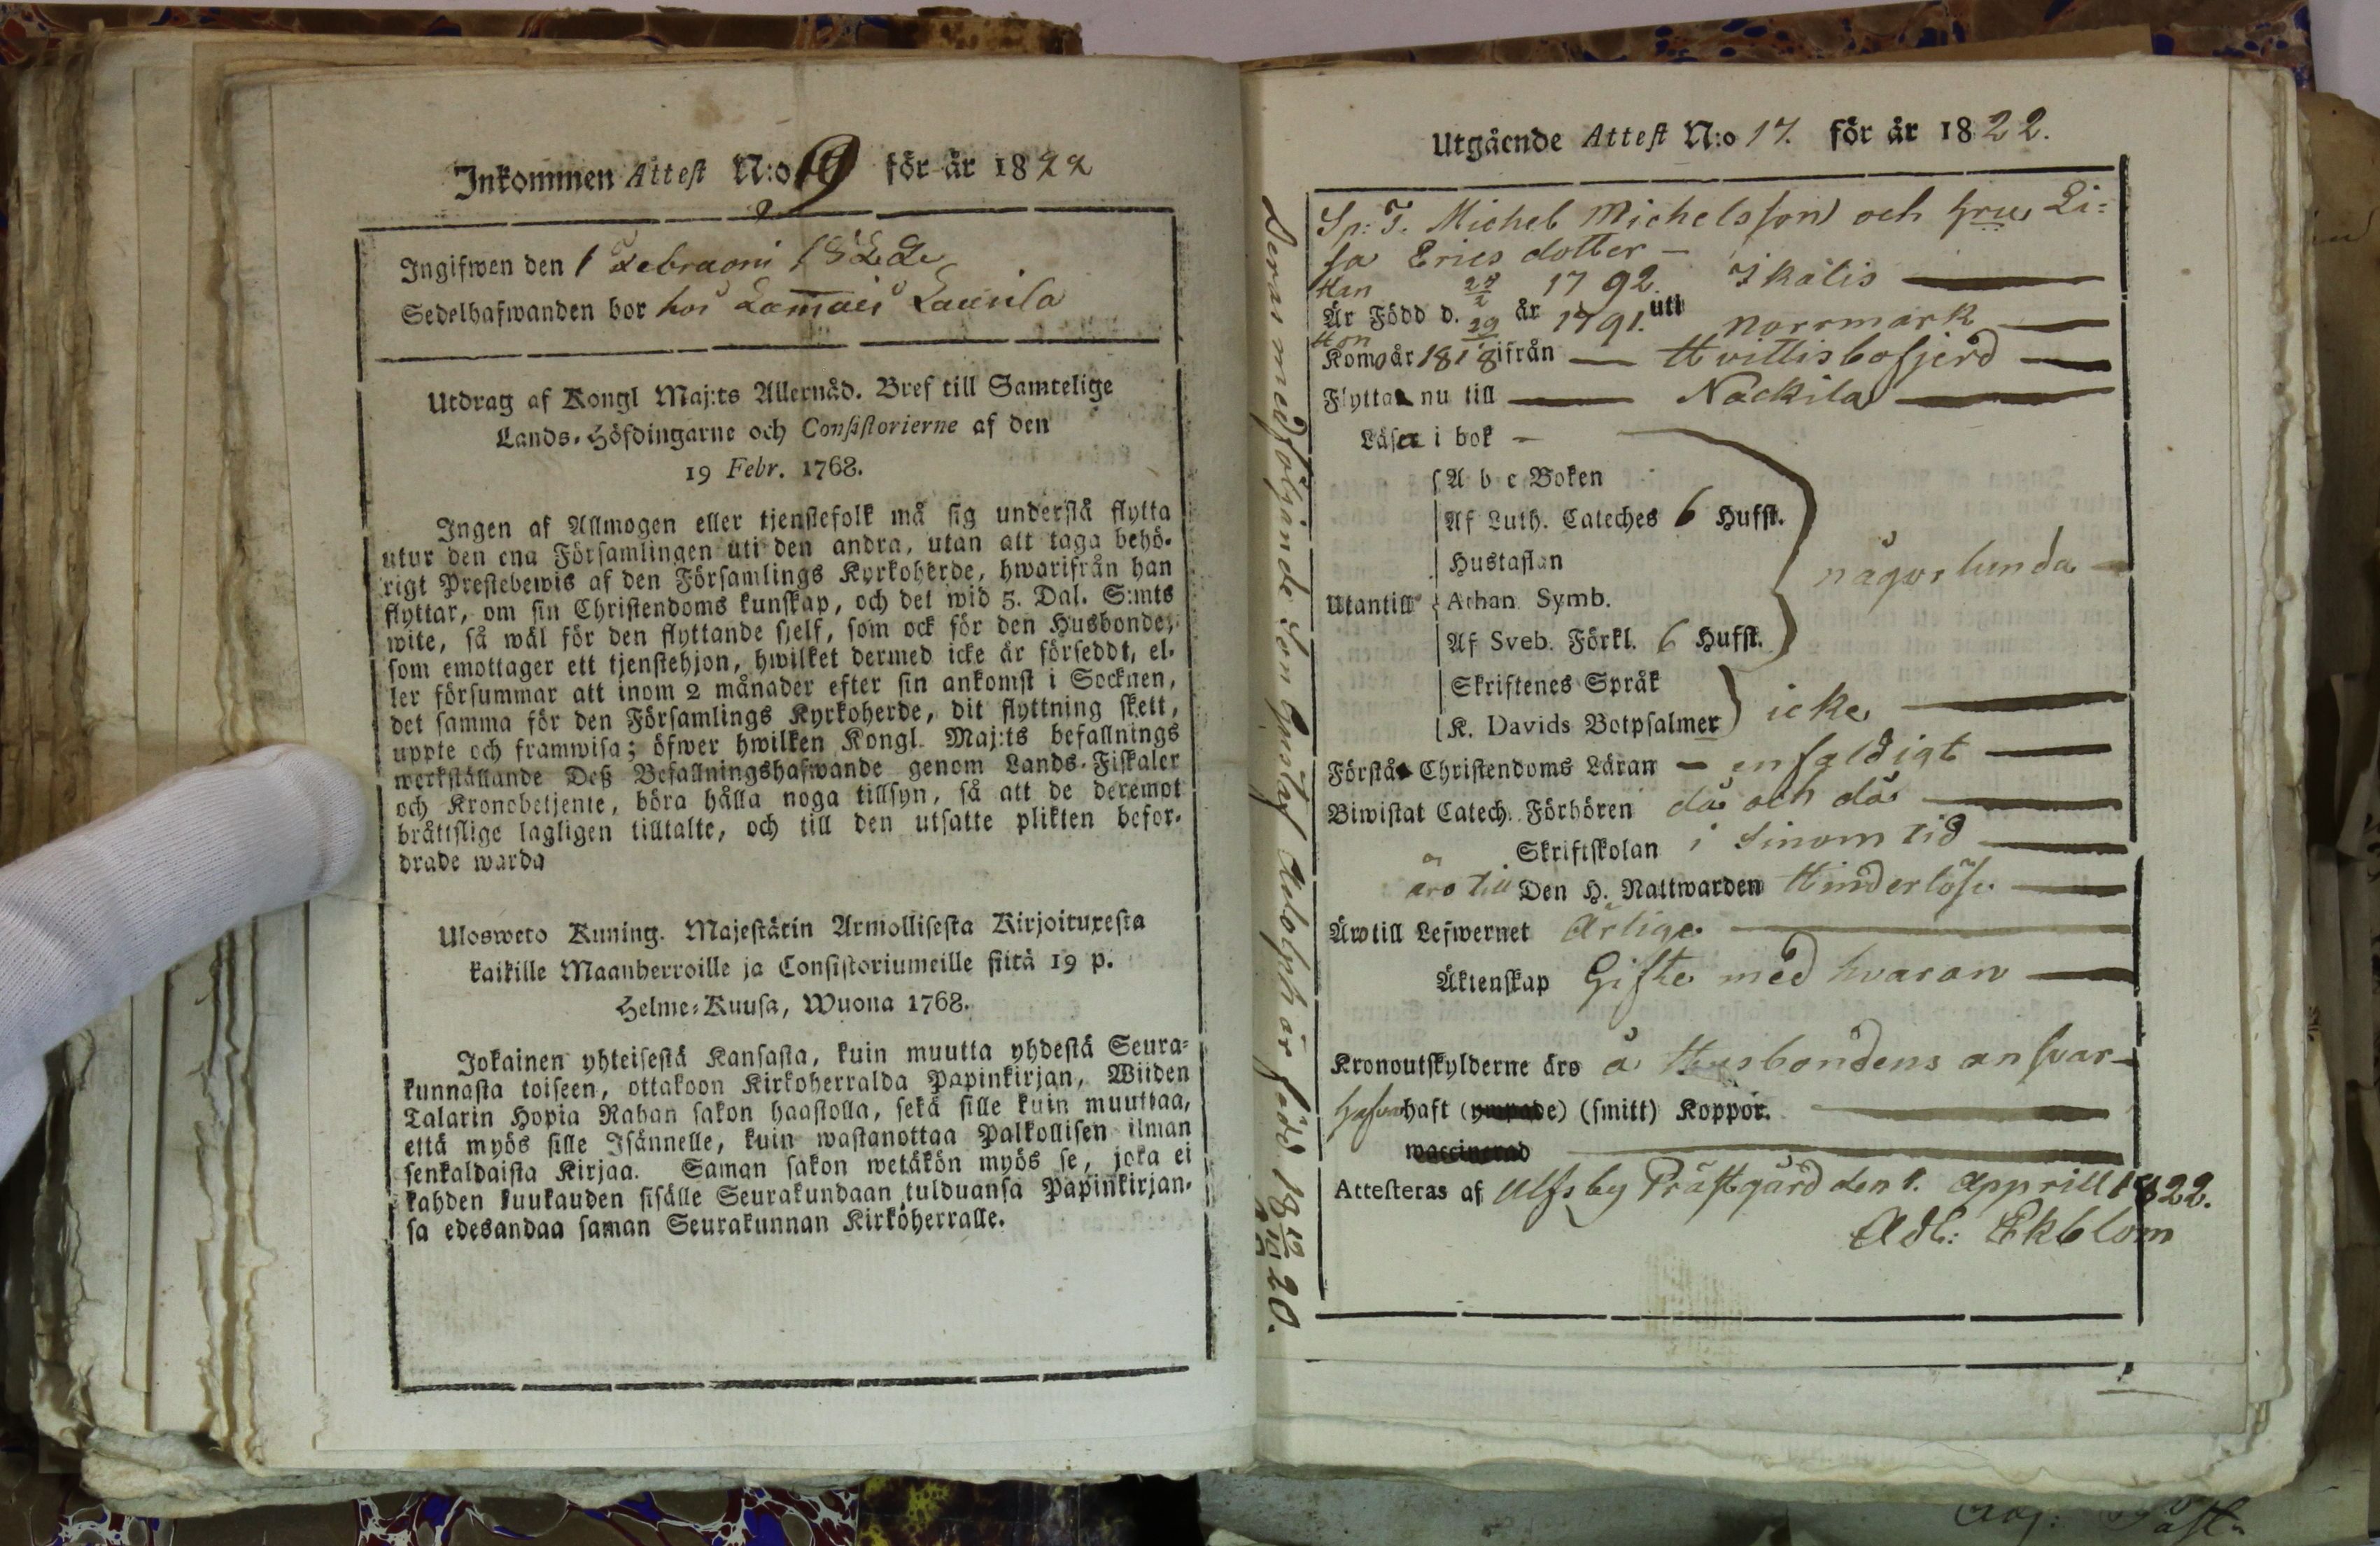 Inkommen Attest N:o 9 för år 1822
Ingifwen den 1 1822
Sedelhafwanden bor hos Laurila
Utdrag af Kongl Maj:ts Allernåd. Bref till Samtelige
Lands-Höfdingarne och Consistorierne af den
19 Febr. 1768.
Ingen af Allmogen eller tjenstefolk må sig understå flytta
utur den ena Församlingen uti den andra, utan att taga behö-
rigt Prestebewis af den Församlings Kyrkoherde, hwarifrån han
flyttar, om sin Christendoms kunskap, och det wid 5. Dal. S:mts
wite, så wäl för den flyttande sjelf, som ock för den Husbonde,
som emottager ett tjenstehjon, hwilket dermed icke är försedt, el-
ler försummar att inom 2 månader efter sin ankomst i Socknen,
det samma för den Församlings Kyrkoherde, dit flyttning skett,
uppte och framwisa; öfwer hwilken Kongl. Maj:ts befallnings
werkställande Deß Befallningshafwande genom Lands-Fiskaler
och Kronobetjente, böra hålla noga tillsyn, så att de deremot
bråttslige lagligen tilltalte, och till den utsatte plikten befor-
drade warda
Ulosweto Kuning. Majestätin Armollisesta Kirjoituxesta
kaikille Maanherroille ja Consistoriumeille siitä 19 p.
Helme-Kuusa, Wuona 1768.
Jokainen yhteisestä Kansasta, kuin muutta yhdestä Seura-
kunnasta toiseen, ottakoon Kirkoherralda Papinkirjan, Wiiden
Talarin Hopia Rahan sakon haastolla, sekä sille kuin muuttaa,
että myös sille Isännelle, kuin wastanottaa Palkollisen ilman
senkaldaista Kirjaa. Saman sakon wetäkön myös se, joka ei
kahden kuukauden sisälle Seurakundaan tulduansa Papinkirjan-
sa edesandaa saman Seurakunnan Kirköherralle.
Deras medföljande Son Gustaf Adolph är född 18 12/10 20.
Utgående Attest N:o 17. för år 1822.
Sp: T. Michel Michelsson och hru Li=
sa Ericsdotter -
Han 1792. Ikalis
Är Född d. 29 år 1791. uti Norrmark
Hon
Kom år 1818 ifrån Hvittisbofjerd
Flytta nu till Nackila
Läser i bok -
A b c Boken
Af Luth. Cateches 6 Hufst.
Hustaflan
Utantill Athan Symb. någorlunda
Af Sveb. Förkl. 6 Hufst.
Skriftenes Språk
K. Davids Botpsalmer icke
Förstå Christendoms Läran - enfaldigt
Biwistat Catech. Förhören då och då
Skriftskolan i sinom tid
äro till Den H. Nattwarden Hinderlöse
Äro till Lefwernet Ärlige
Äktenskap Gifte med hvaran
Kronoutskylderne äro å Husbondens ansvar
hafwa haft (ympade) (smitt) Koppor.
waccinerad
Attesteras af Ulfsby Prästgård den 1. Apprill 1822.
Adl: Ekblom